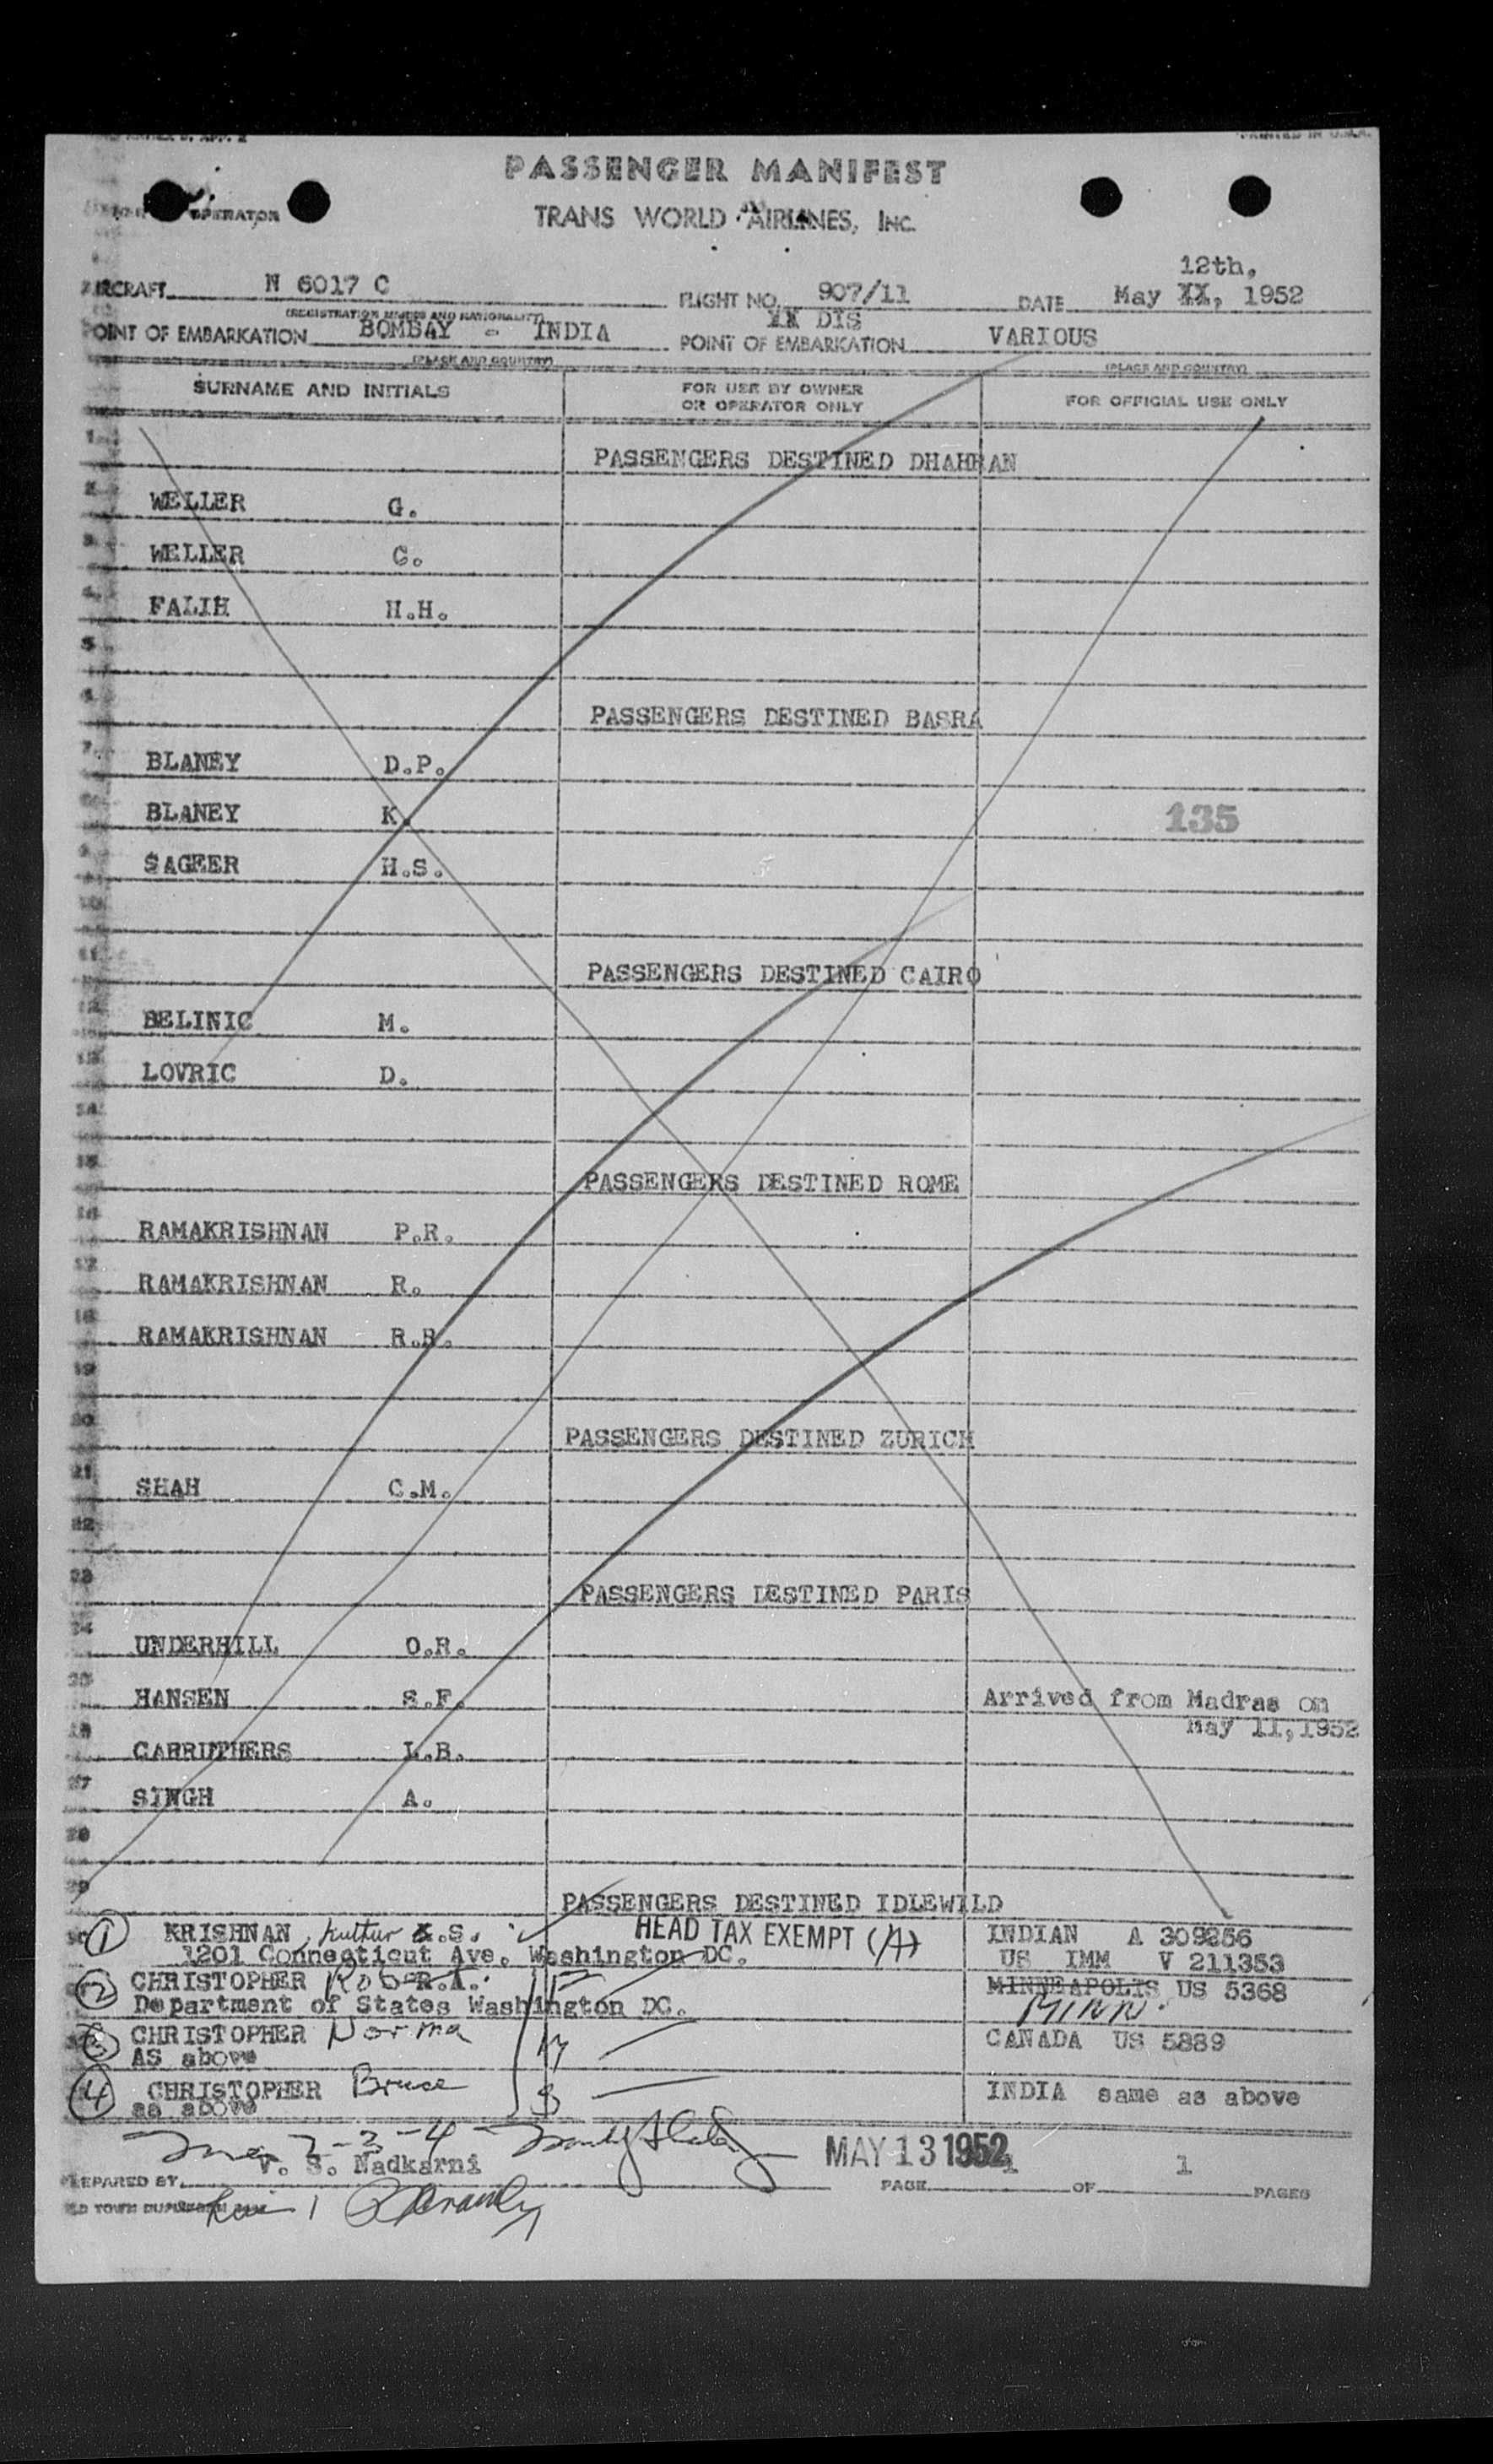 PRINTED IN U.S.A.
PASSENGER MANIFEST
OPERATOR
TRANS WORLD AIRLINES, INC.
AIRCRAFT N 6017 C FLIGHT NO. 907/11 DATE May XX, 1952
12th,
(REGISTRATION MARKS AND NATIONALITY)
XX DIS
POINT OF EMBARKATION BOMBAY - INDIA POINT OF EMBARKATION VARIOUS
(PLACE AND COUNTRY) (PLACE AND COUNTRY)
SURNAME AND INITIALS FOR USE BY OWNER OR OPERATOR ONLY FOR OFFICIAL USE ONLY
1 PASSENGERS DESTINED DHAHRAN
2 WELLER G.
3 WELLER C.
4 FALIH H.H.
5
6 PASSENGERS DESTINED BASRA
7 BLANEY D.P.
8 BLANEY K. 135
9 SAGEER H.S.
10
11 PASSENGERS DESTINED CAIRO
12 BELINIC M.
13 LOVRIC D.
14
15 PASSENGERS DESTINED ROME
16 RAMAKRISHNAN P.R.
17 RAMAKRISHNAN R.
18 RAMAKRISHNAN R.R.
19
20 PASSENGERS DESTINED ZURICH
21 SHAH C.M.
22
23 PASSENGERS DESTINED PARIS
24 UNDERHILL O.R.
25 HANSEN S.F. Arrived from Madras on
May 11, 1952
26 CARRUTHERS L.B.
27 SINGH A.
28
29 PASSENGERS DESTINED IDLEWILD
30 1 KRISHNAN, Kultur K.S. HEAD TAX EXEMPT (A) INDIAN A 309256
1201 Connecticut Ave. Washington DC. US IMM V 211353
2 CHRISTOPHER R.A. MINNEAPOLIS US 5368
Department of States Washington DC. MINN.
3 CHRISTOPHER Norma CANADA US 5889
AS above
4 CHRISTOPHER Bruce INDIA same as above
as above
2-3-4
MAY 13 1952
PREPARED BY V. S. Nadkarni PAGE 1 OF 1 PAGES